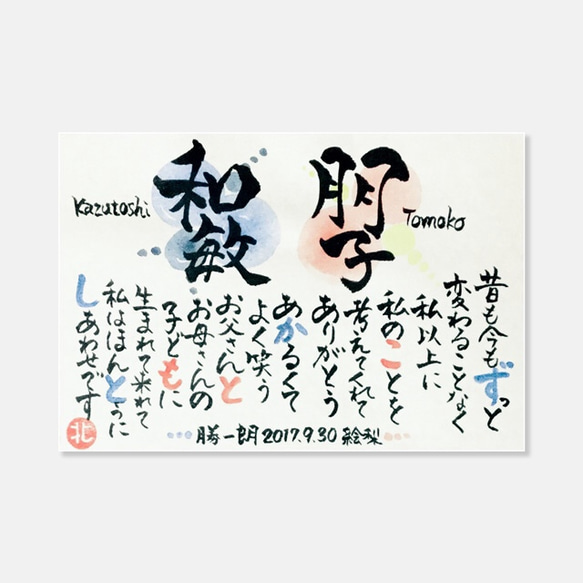 朋子
Tomoko
和敏
Kazutoshi
昔も今もずっと
変わることなく
私以上に
私のことを
考えてくれて
ありがとう
あかるくて
よく笑う
お父さんと
お母さんの
子どもに
生まれて来れて
私はほんとうに
しあわせです
勝一朗 2017.9.30 絵梨
北